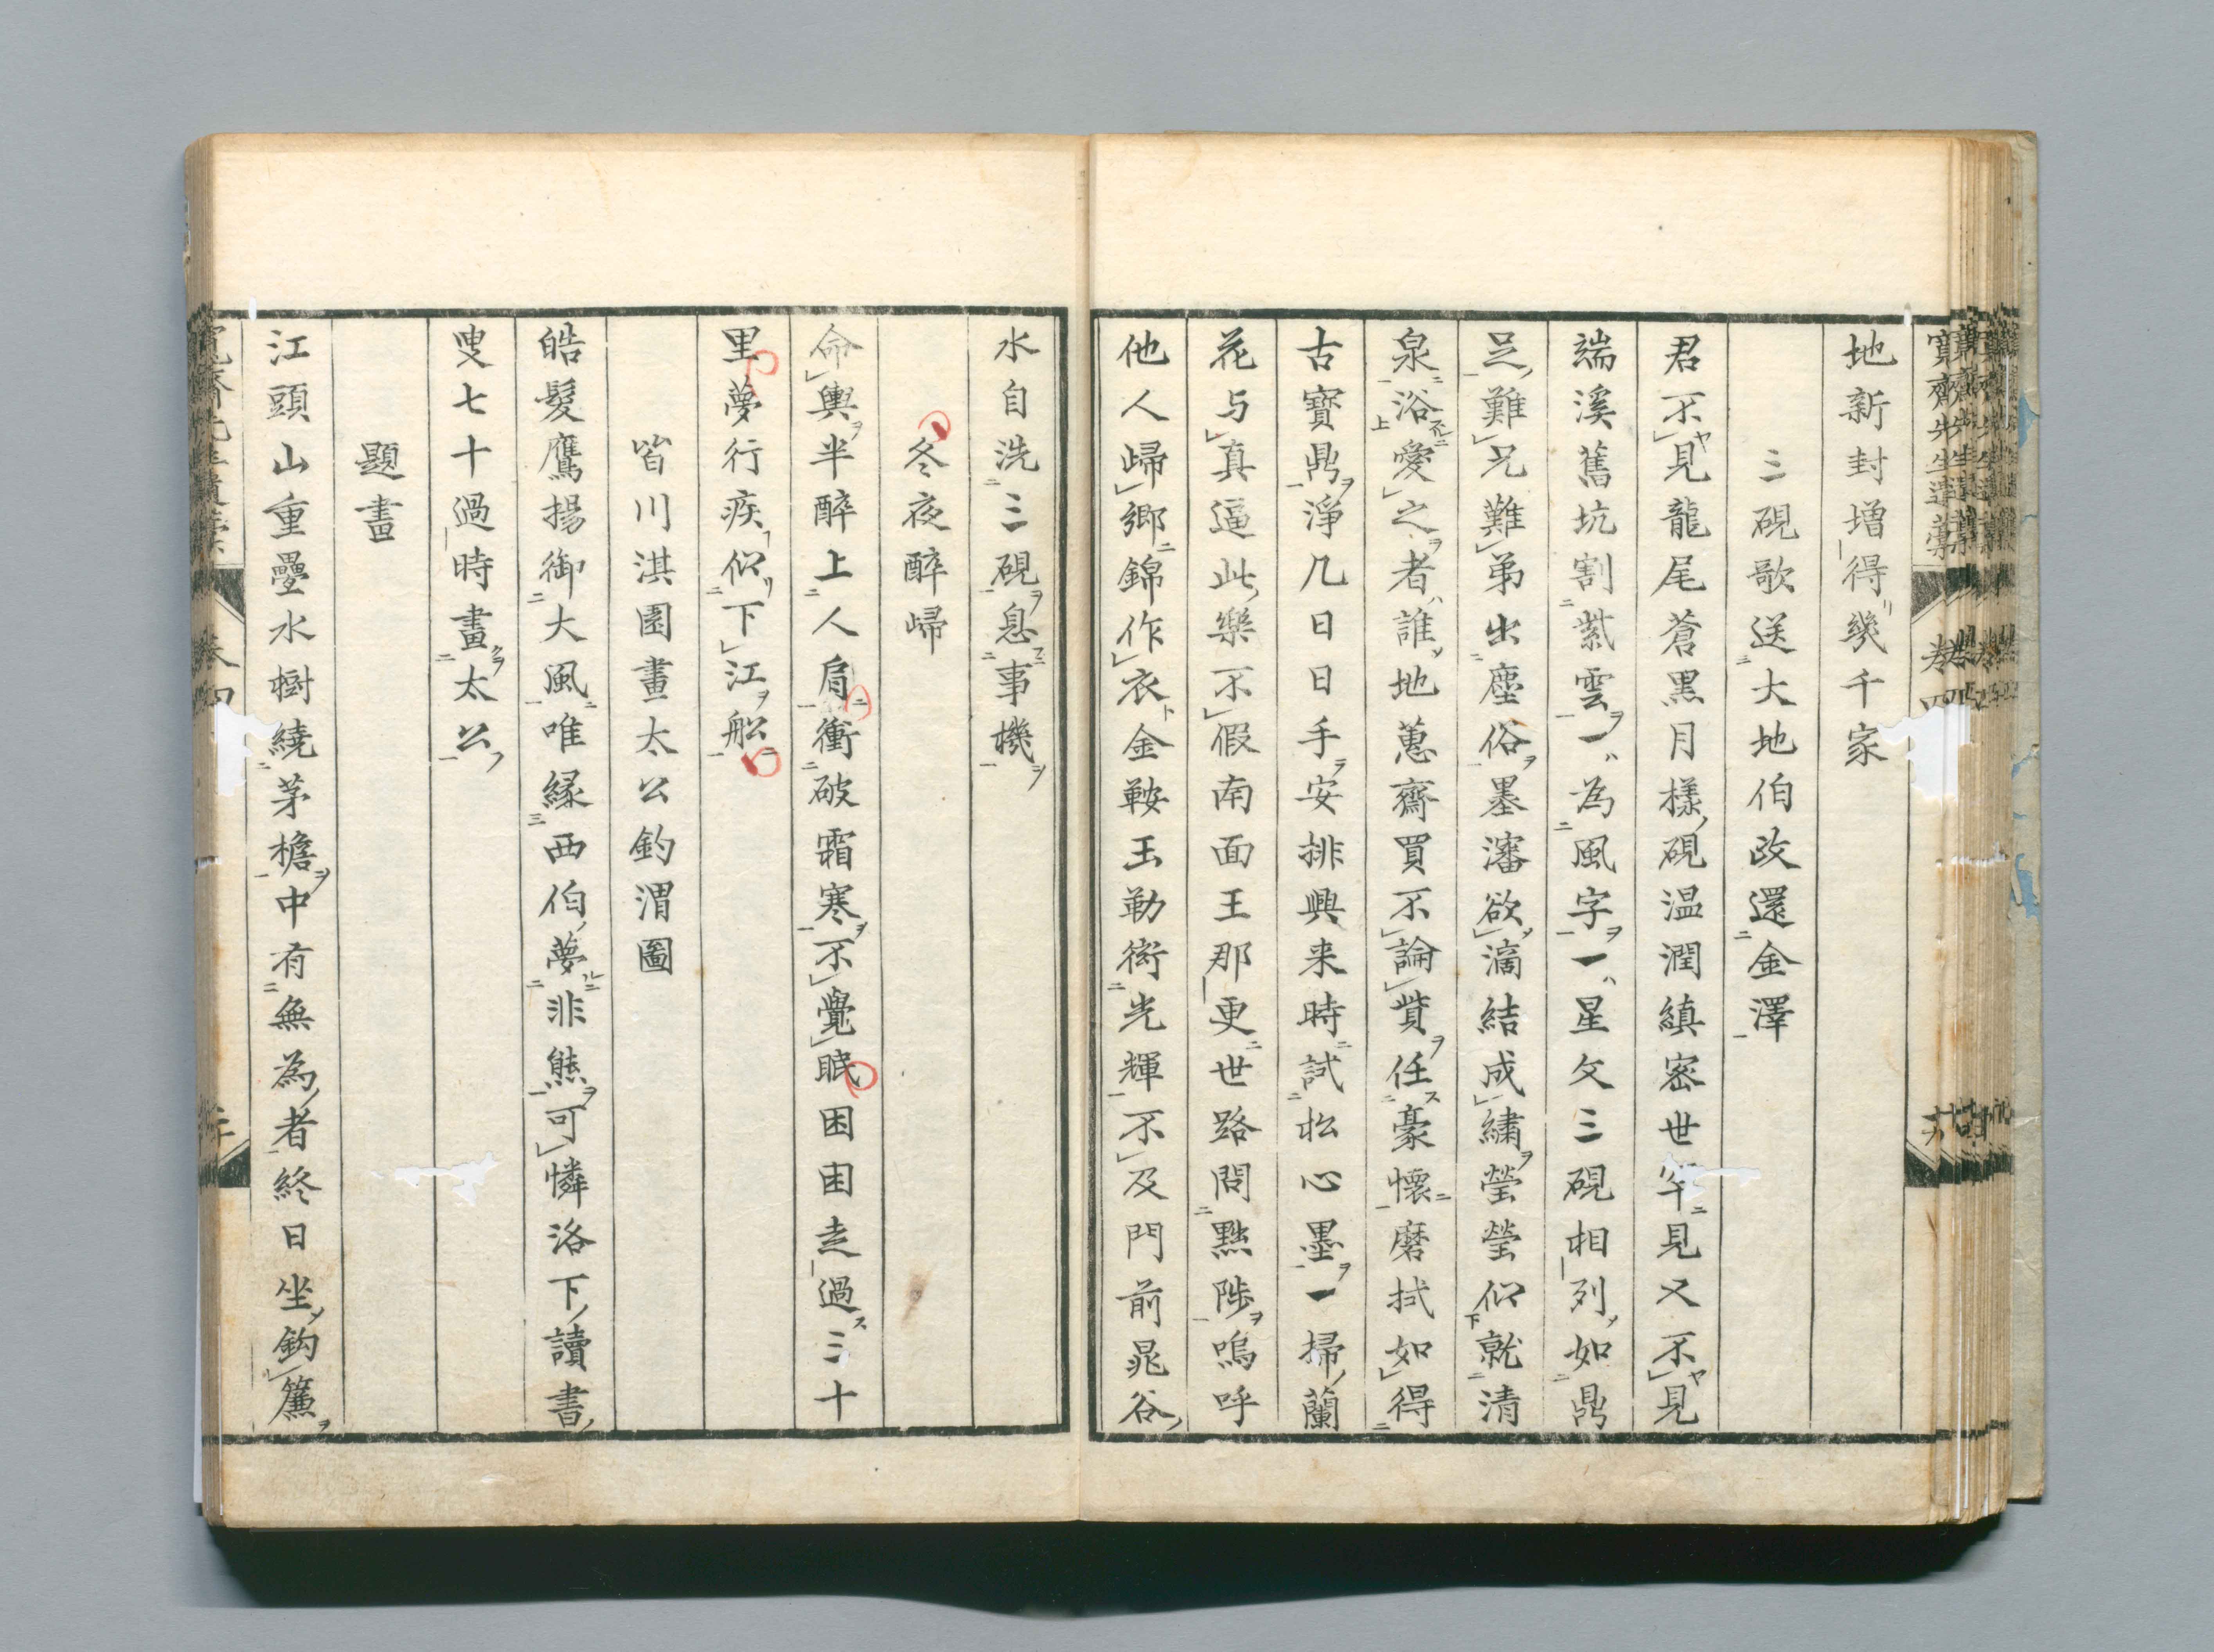 地新封増得幾千家
三硯歌送大地伯改還金澤
君不見龍尾蒼黒月樣硯温潤縝密世罕見又不見
端溪舊坑割紫雲一為風字一星文三硯相列如鼎
足難兄難弟出塵俗墨瀋欲滴結成繍瑩瑩似就清
泉浴愛之者誰地蕙齋買不論貲任豪懷磨拭如得
古寶鼎淨几日日手安排興来時試松心墨一掃蘭
花与真逼此樂不假南面王那更世路問黜陟嗚呼
他人歸郷錦作衣金鞍玉勒衒光輝不及門前晁谷
水自洗三硯息事機
冬夜醉歸
命輿半醉上人肩衝破霜寒不覺眠困困走過三十
里夢行疾似下江船
皆川淇園畫太公釣渭圖
皓髮鷹揚御大風唯縁西伯夢非熊可憐洛下讀書
叟七十過時畫太公
題畫
江頭山重疊水樹繞茅檐中有無為者終日坐鈎簾